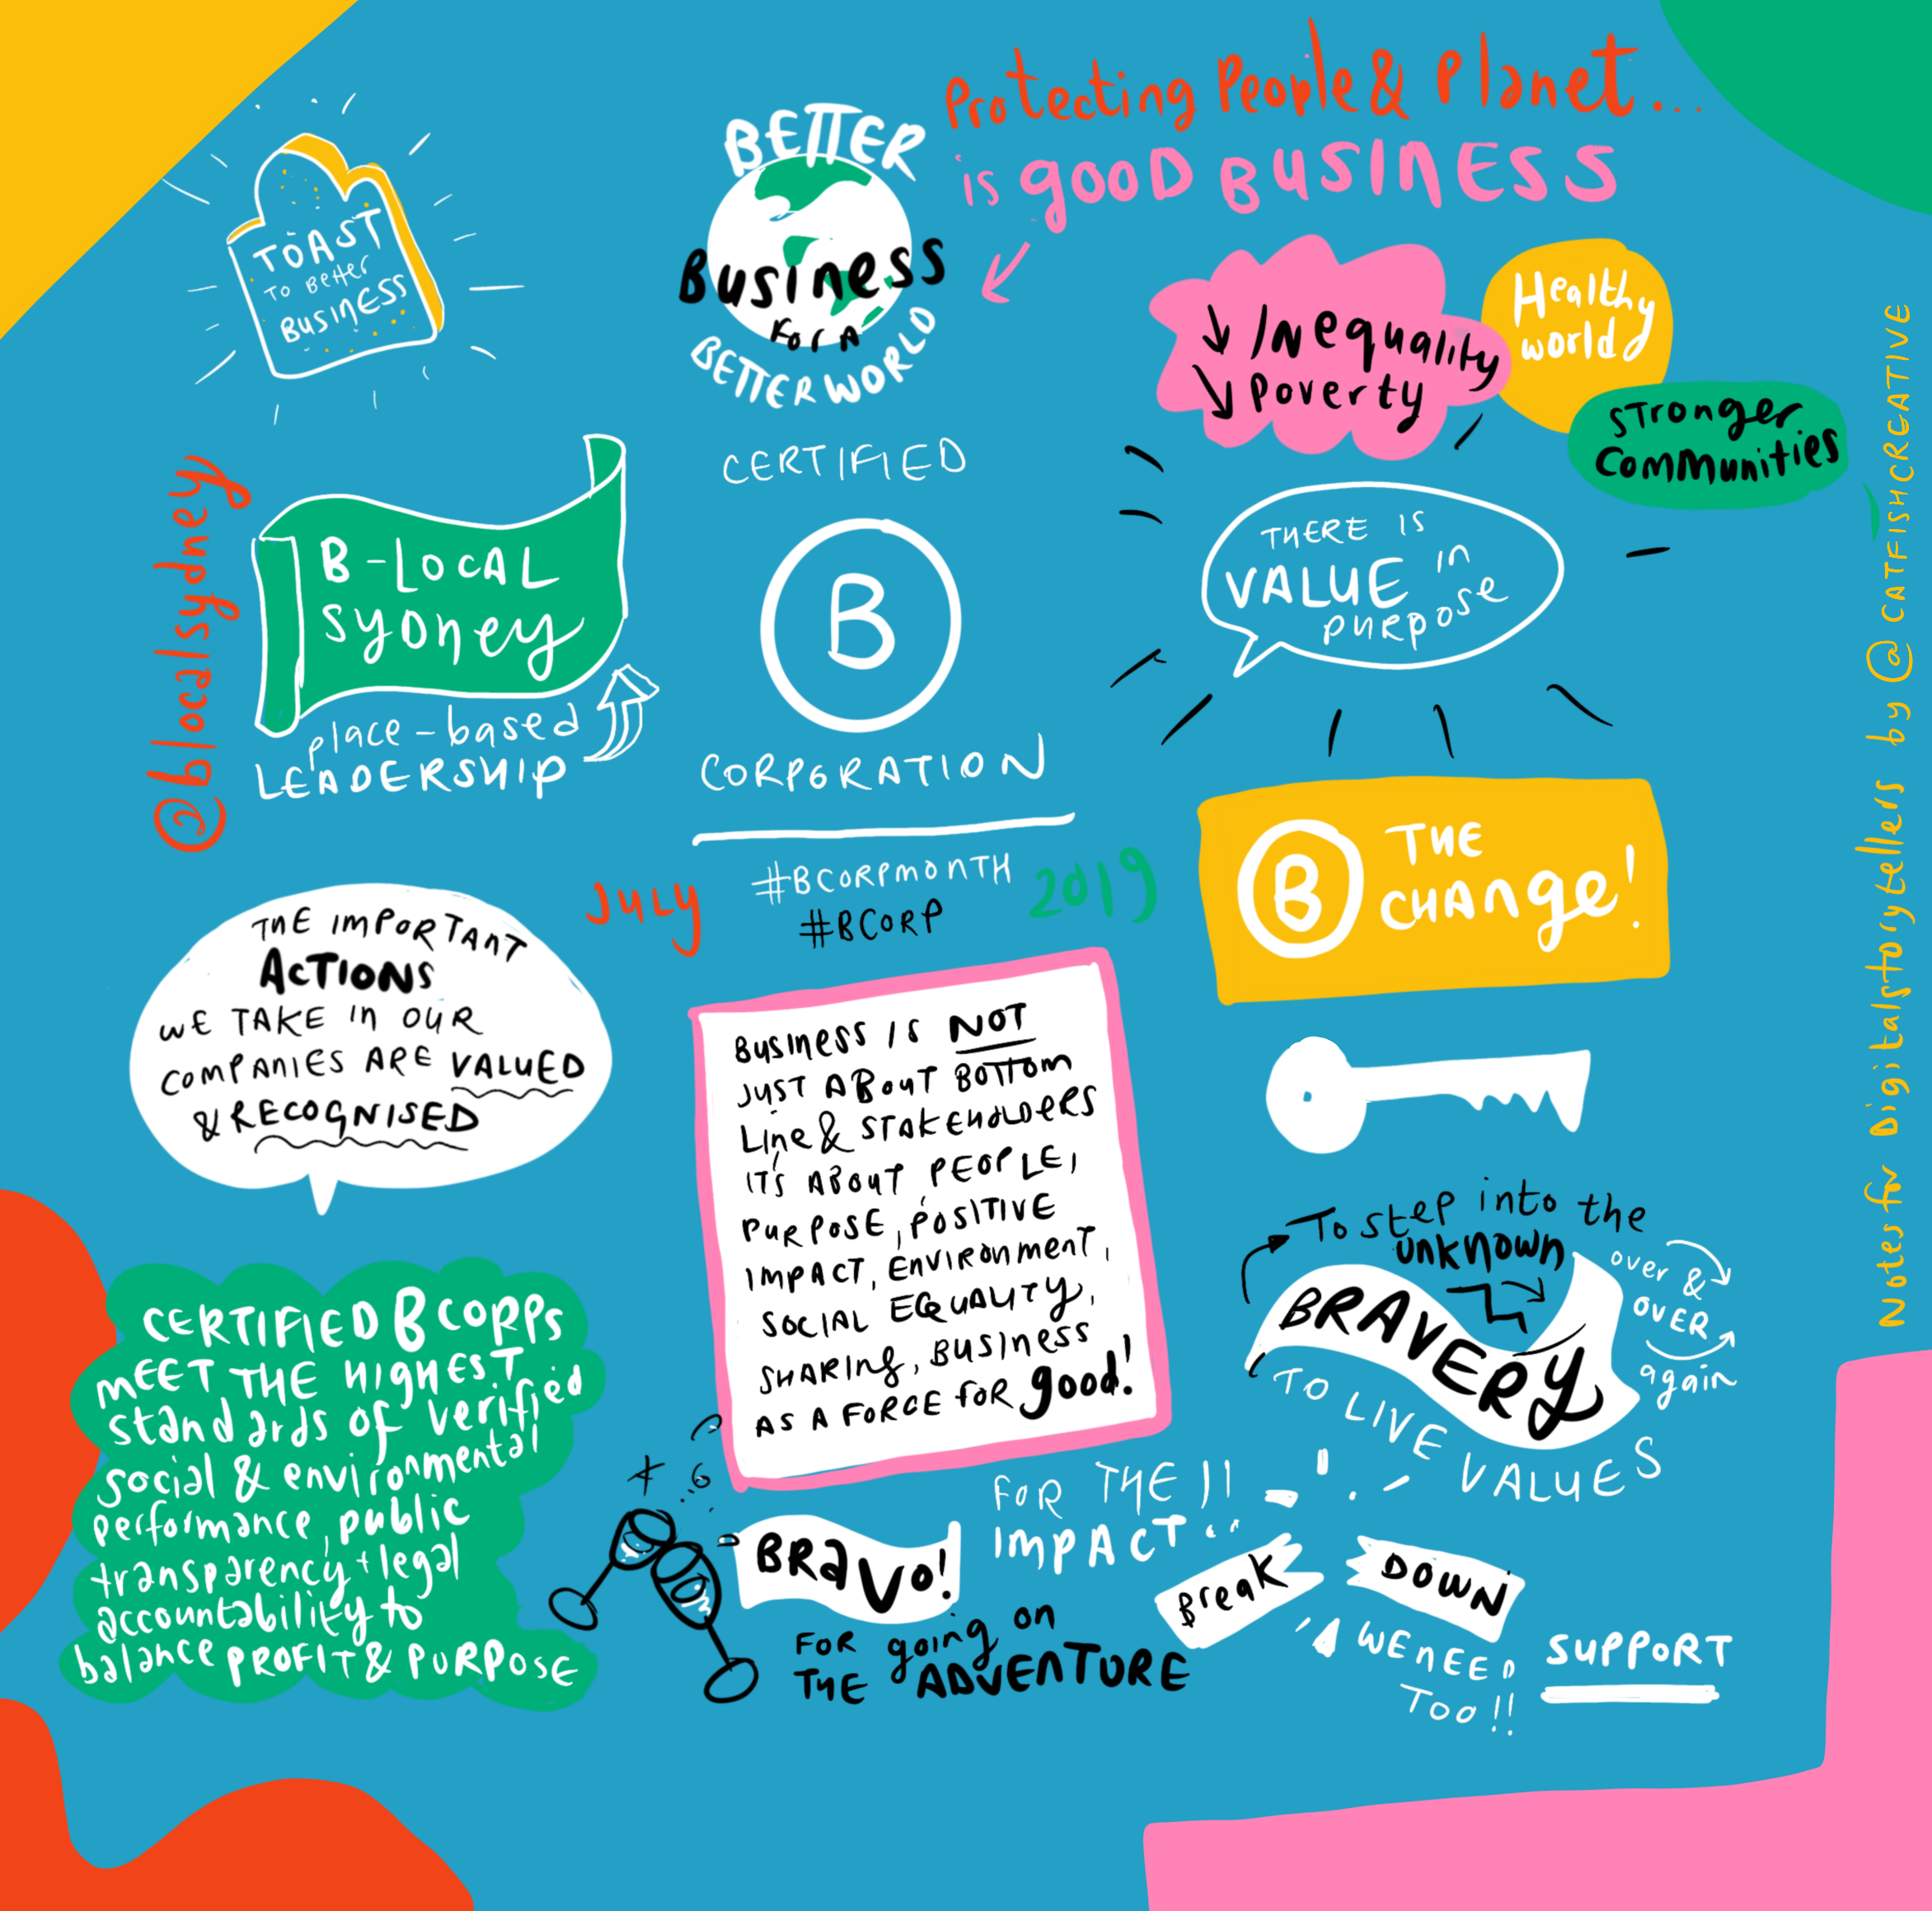 Protecting People & Planet...
is good BUSINESS
TOAST
TO BETTER
BUSINESS
BETTER
Business
for a
BETTER WORLD
↓ Inequality
↘ Poverty
Healthy
world
Stronger
Communities
@blocalsydney
B-LOCAL
Sydney
place-based
LEADERSHIP
CERTIFIED
B
CORPORATION
July
#BCORPMONTH
#BCORP
2019
THERE IS
VALUE in
purpose
B THE
CHANge!
THE IMPORTANT
ACTIONS
WE TAKE in OUR
COMPANIES ARE VALUED
& RECOGNISED
Business is NOT
JUST ABOUT BOTTOM
Line & STAKEHOLDERS
IT'S ABOUT PEOPLE,
PURPOSE, POSITIVE
IMPACT, ENVIRONMENT,
SOCIAL EQUALITY,
SHARING, BUSINESS
AS A FORCE FOR good!
To step into the
unknown
BRAVERY
over &
OVER
again
TO LIVE VALUES
CERTIFIED B CORPS
MEET THE HIGHEST
standards of verified
social & environmental
performance, public
transparency + legal
accountability to
balance PROFIT & PURPOSE
BRAVO!
FOR THE !!
IMPACT
FOR going on
THE ADVENTURE
Break
DOWN
WE NEED
TOO!!
SUPPORT
Notes for Digitalstorytellers by @CATFISHCREATIVE